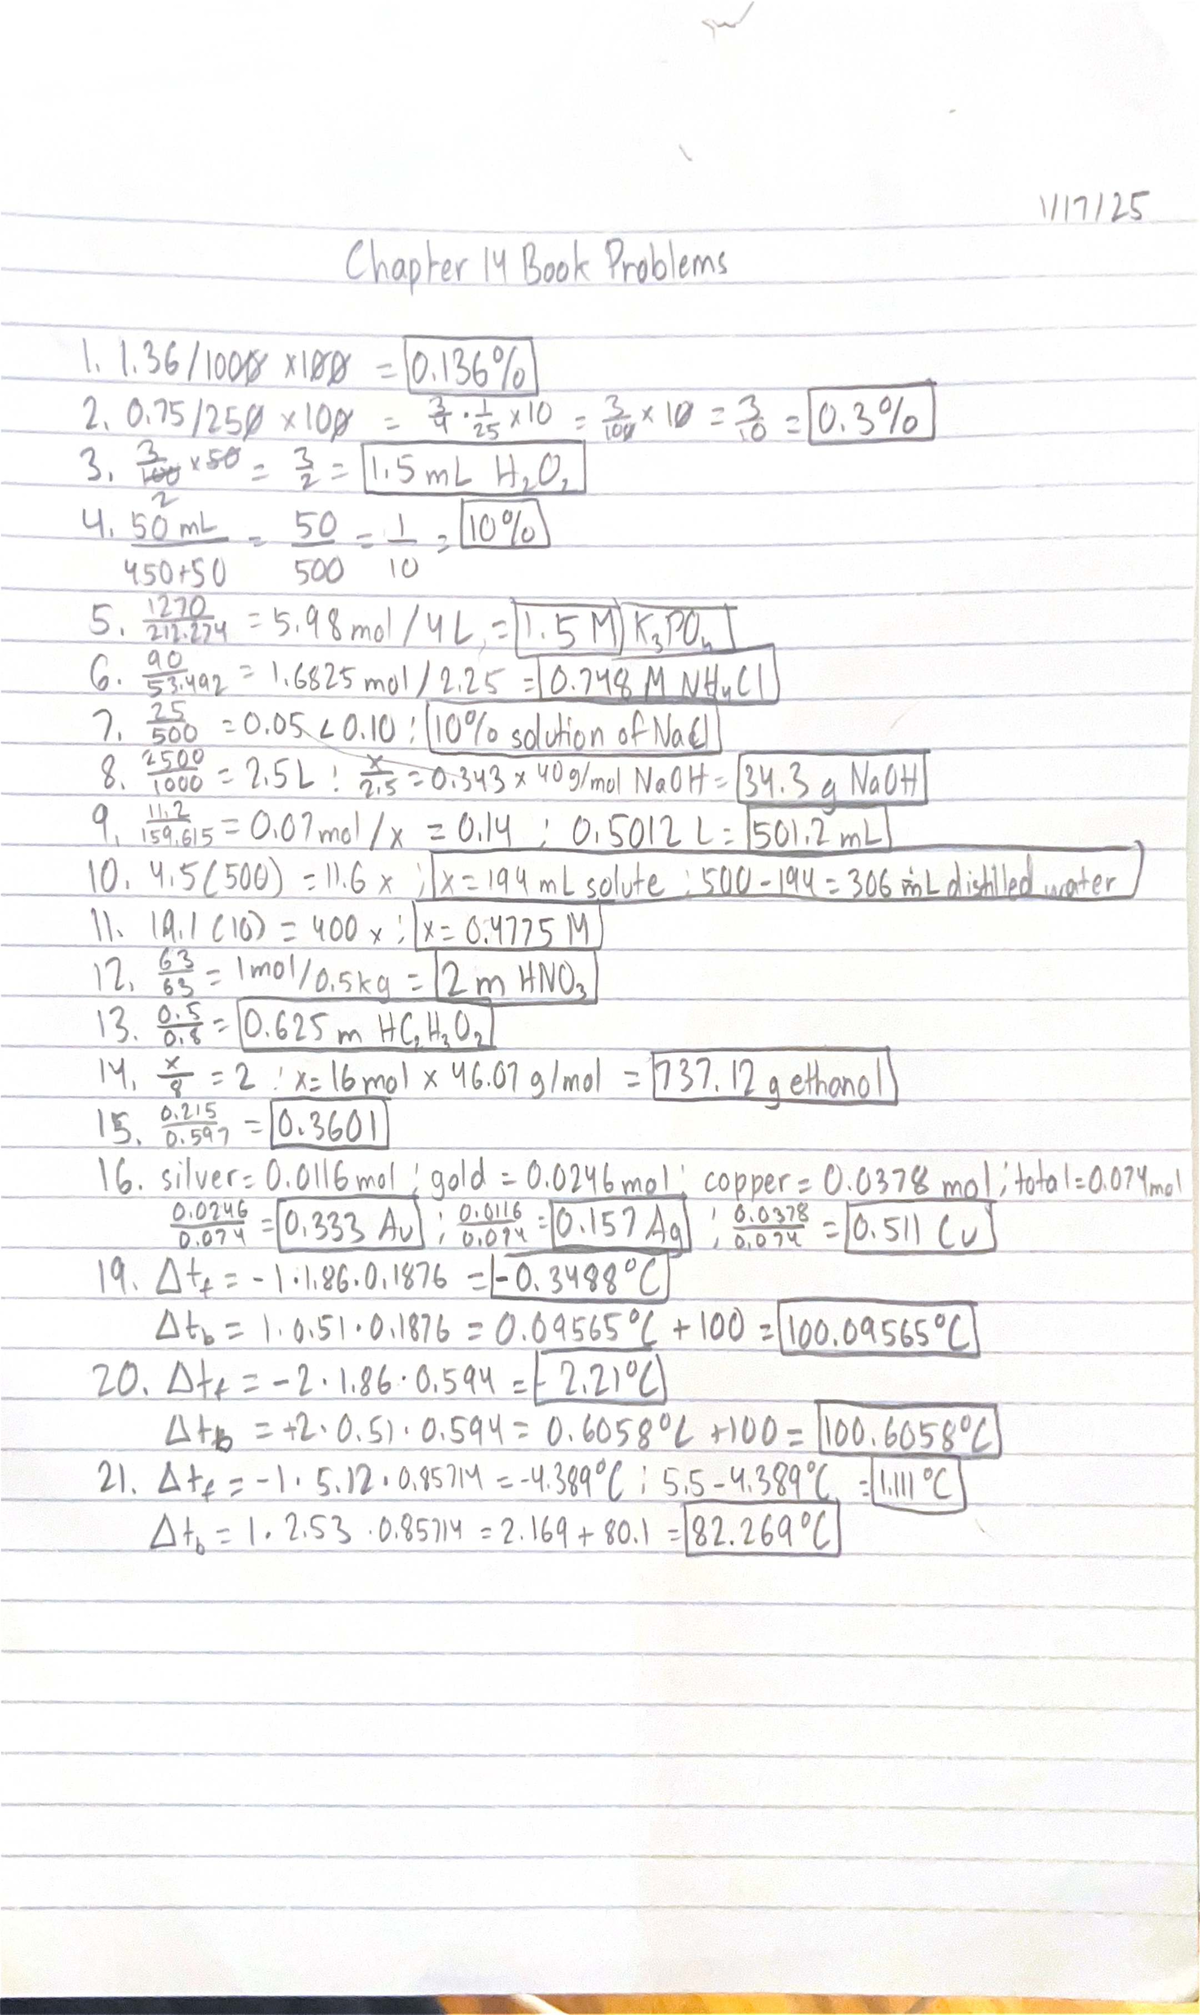 1/17/25
Chapter 14 Book Problems
1. 1.36/1000 x100 = 0.136%
2. 0.75/250 x 100 = 3/4 · 1/25 x 10 = 3/100 x 10 = 3/10 = 0.3%
3. 3/100 x 50 = 3/2 = 1.5 mL H₂O₂
2
4. 50 mL/450+50 = 50/500 = 1/10 = 10%
5. 1270/212.274 = 5.98 mol / 4 L = 1.5 M K₃PO₄
6. 90/53.492 = 1.6825 mol / 2.25 = 0.748 M NH₄Cl
7. 25/500 = 0.05 < 0.10 ; 10% solution of NaCl
8. 2500/1000 = 2.5 L ; x/2.5 = 0.343 x 40 g/mol NaOH = 34.3 g NaOH
9. 11.2/159.615 = 0.07 mol / x = 0.14 ; 0.5012 L = 501.2 mL
10. 4.5(500) = 11.6 x ; x = 194 mL solute ; 500 - 194 = 306 mL distilled water
11. 19.1 (10) = 400 x ; x = 0.4775 M
12. 63/63 = 1 mol / 0.5 kg = 2 m HNO₃
13. 0.5/0.8 = 0.625 m HC₂H₃O₂
14. x/8 = 2 ; x = 16 mol x 46.07 g/mol = 737.12 g ethanol
15. 0.215/0.597 = 0.3601
16. silver = 0.0116 mol ; gold = 0.0246 mol ; copper = 0.0378 mol ; total = 0.074 mol
0.0246/0.074 = 0.333 Au ; 0.0116/0.074 = 0.157 Ag ; 0.0378/0.074 = 0.511 Cu
19. Δtf = -1 · 1.86 · 0.1876 = -0.3488°C
Δtb = 1 · 0.51 · 0.1876 = 0.09565°C + 100 = 100.09565°C
20. Δtf = -2 · 1.86 · 0.594 = -2.21°C
Δtb = +2 · 0.51 · 0.594 = 0.6058°C +100 = 100.6058°C
21. Δtf = -1 · 5.12 · 0.85714 = -4.389°C ; 5.5 - 4.389°C = 1.111°C
Δtb = 1 · 2.53 · 0.85714 = 2.169 + 80.1 = 82.269°C